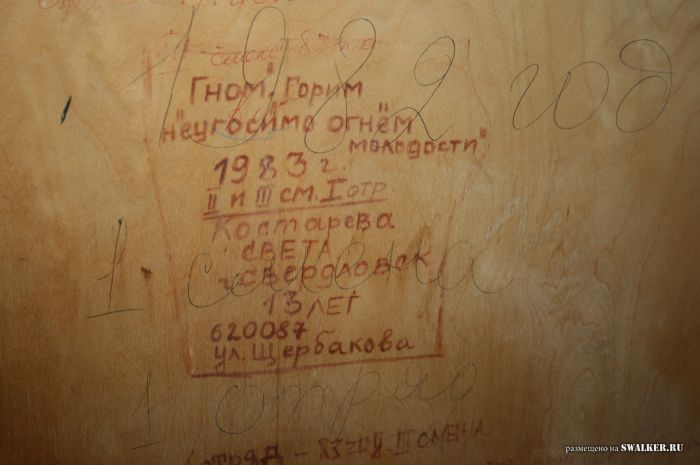 1982 год
Гном", Горим
"неугосимо огнём
молодости"
1983 г.
II и III см. I отр.
Костарева
СВЕТА
г. СВЕРДЛОВСК
13 ЛЕТ
620087
ул. Щербакова
1 смена
1 отряд
размещено на SWALKER.RU